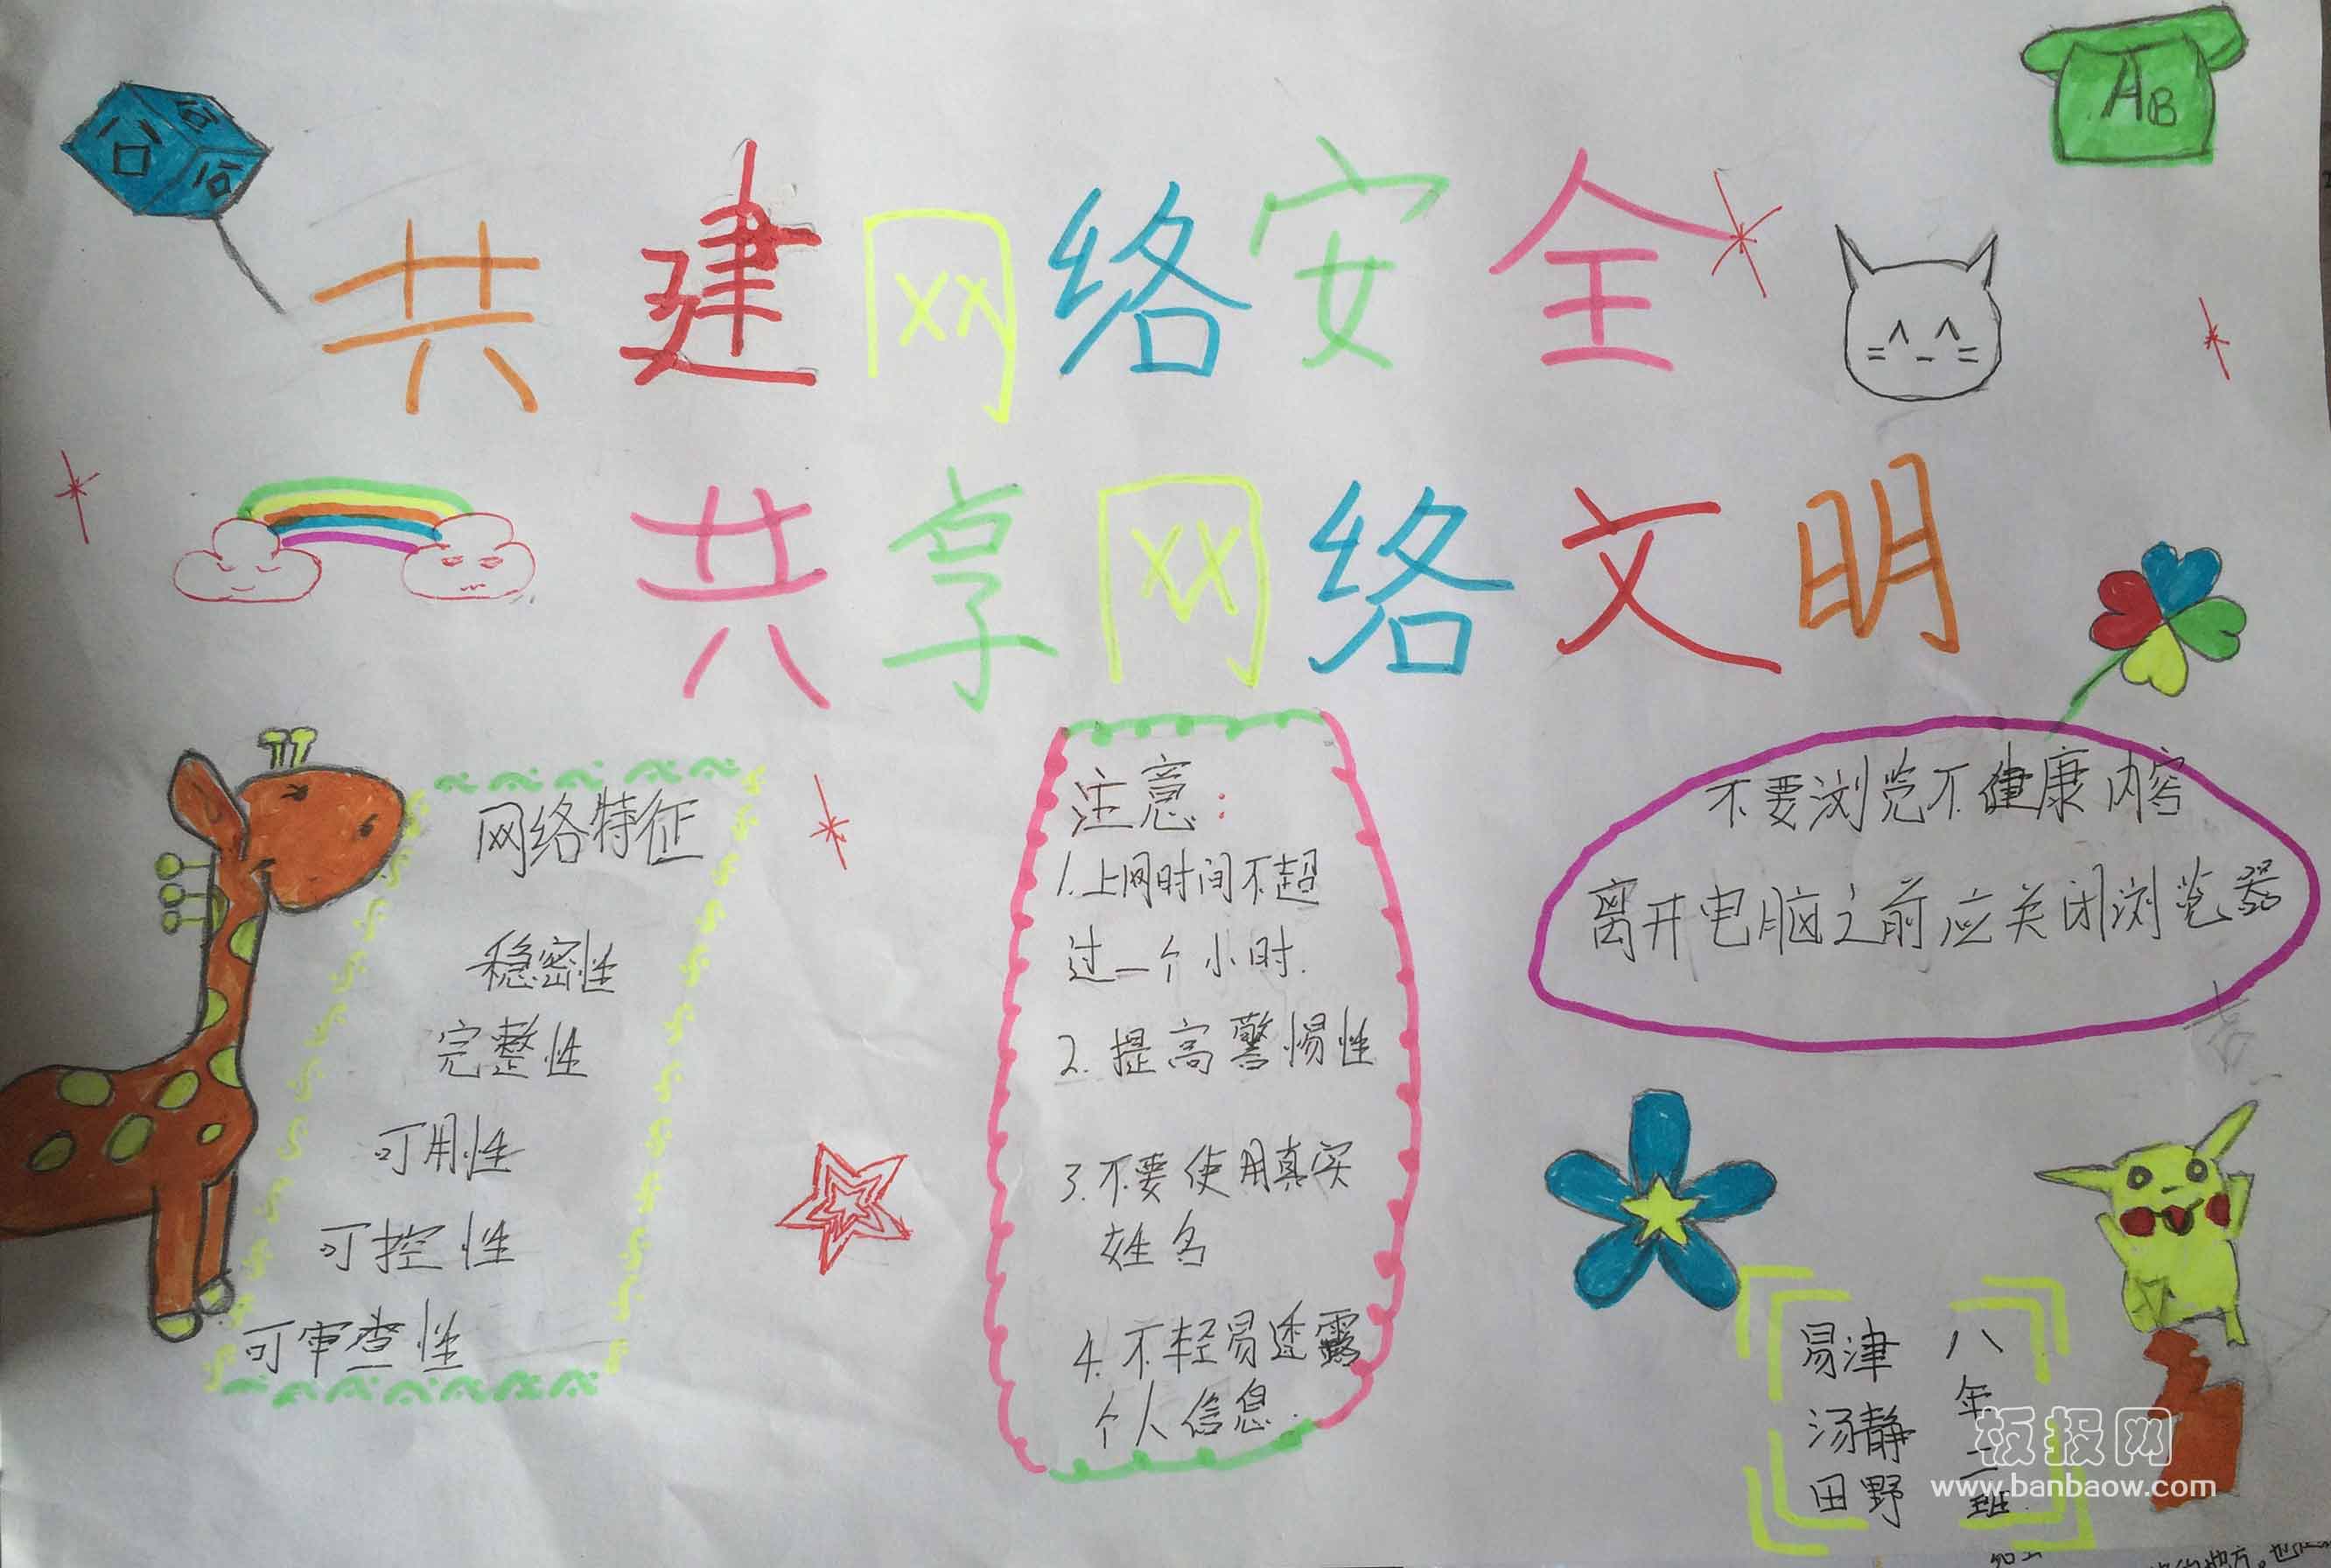 AB
共建网络安全
共享网络文明
网络特征
稳密性
完整性
可用性
可控性
可审查性
注意:
1.上网时间不超
过一个小时.
2.提高警惕性
3.不要使用真实
姓名
4.不轻易透露
个人信息.
不要浏览不健康内容
离开电脑之前应关闭浏览器
八年二班
易津
汤静
田野
板报网
www.banbaow.com